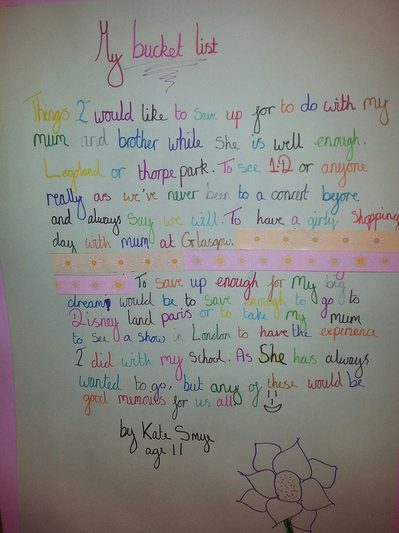 My bucket list
Things I would like to save up for to do with my
mum and brother while she is well enough.
Legoland or thorpe park. To see 1D or anyone
really as we've never been to a concert before
and always say we will. To have a girly shopping
day with mum at Glasgow.
To save up enough for my big
dream would be to save enough to go to
Disney land paris or to take my mum
to see a show in London to have the experience
I did with my school. As She has always
wanted to go, but any of these would be
good memories for us all.
by Kate Smye
age 11